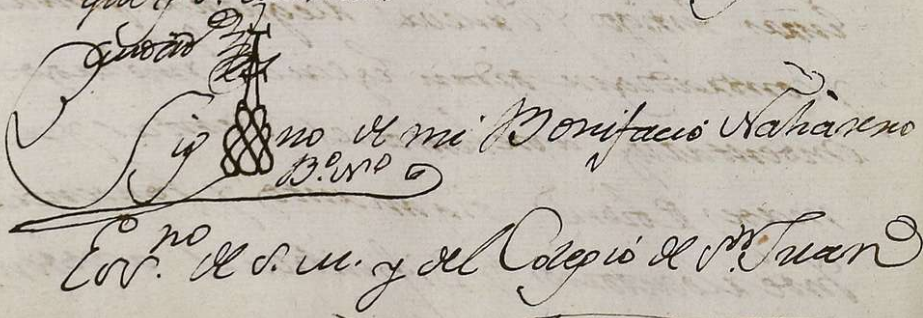 Sig no de mi Bonifacio Nahareno
B.º N.º
Es.no de S. M. y del Colegio de S.n Juan